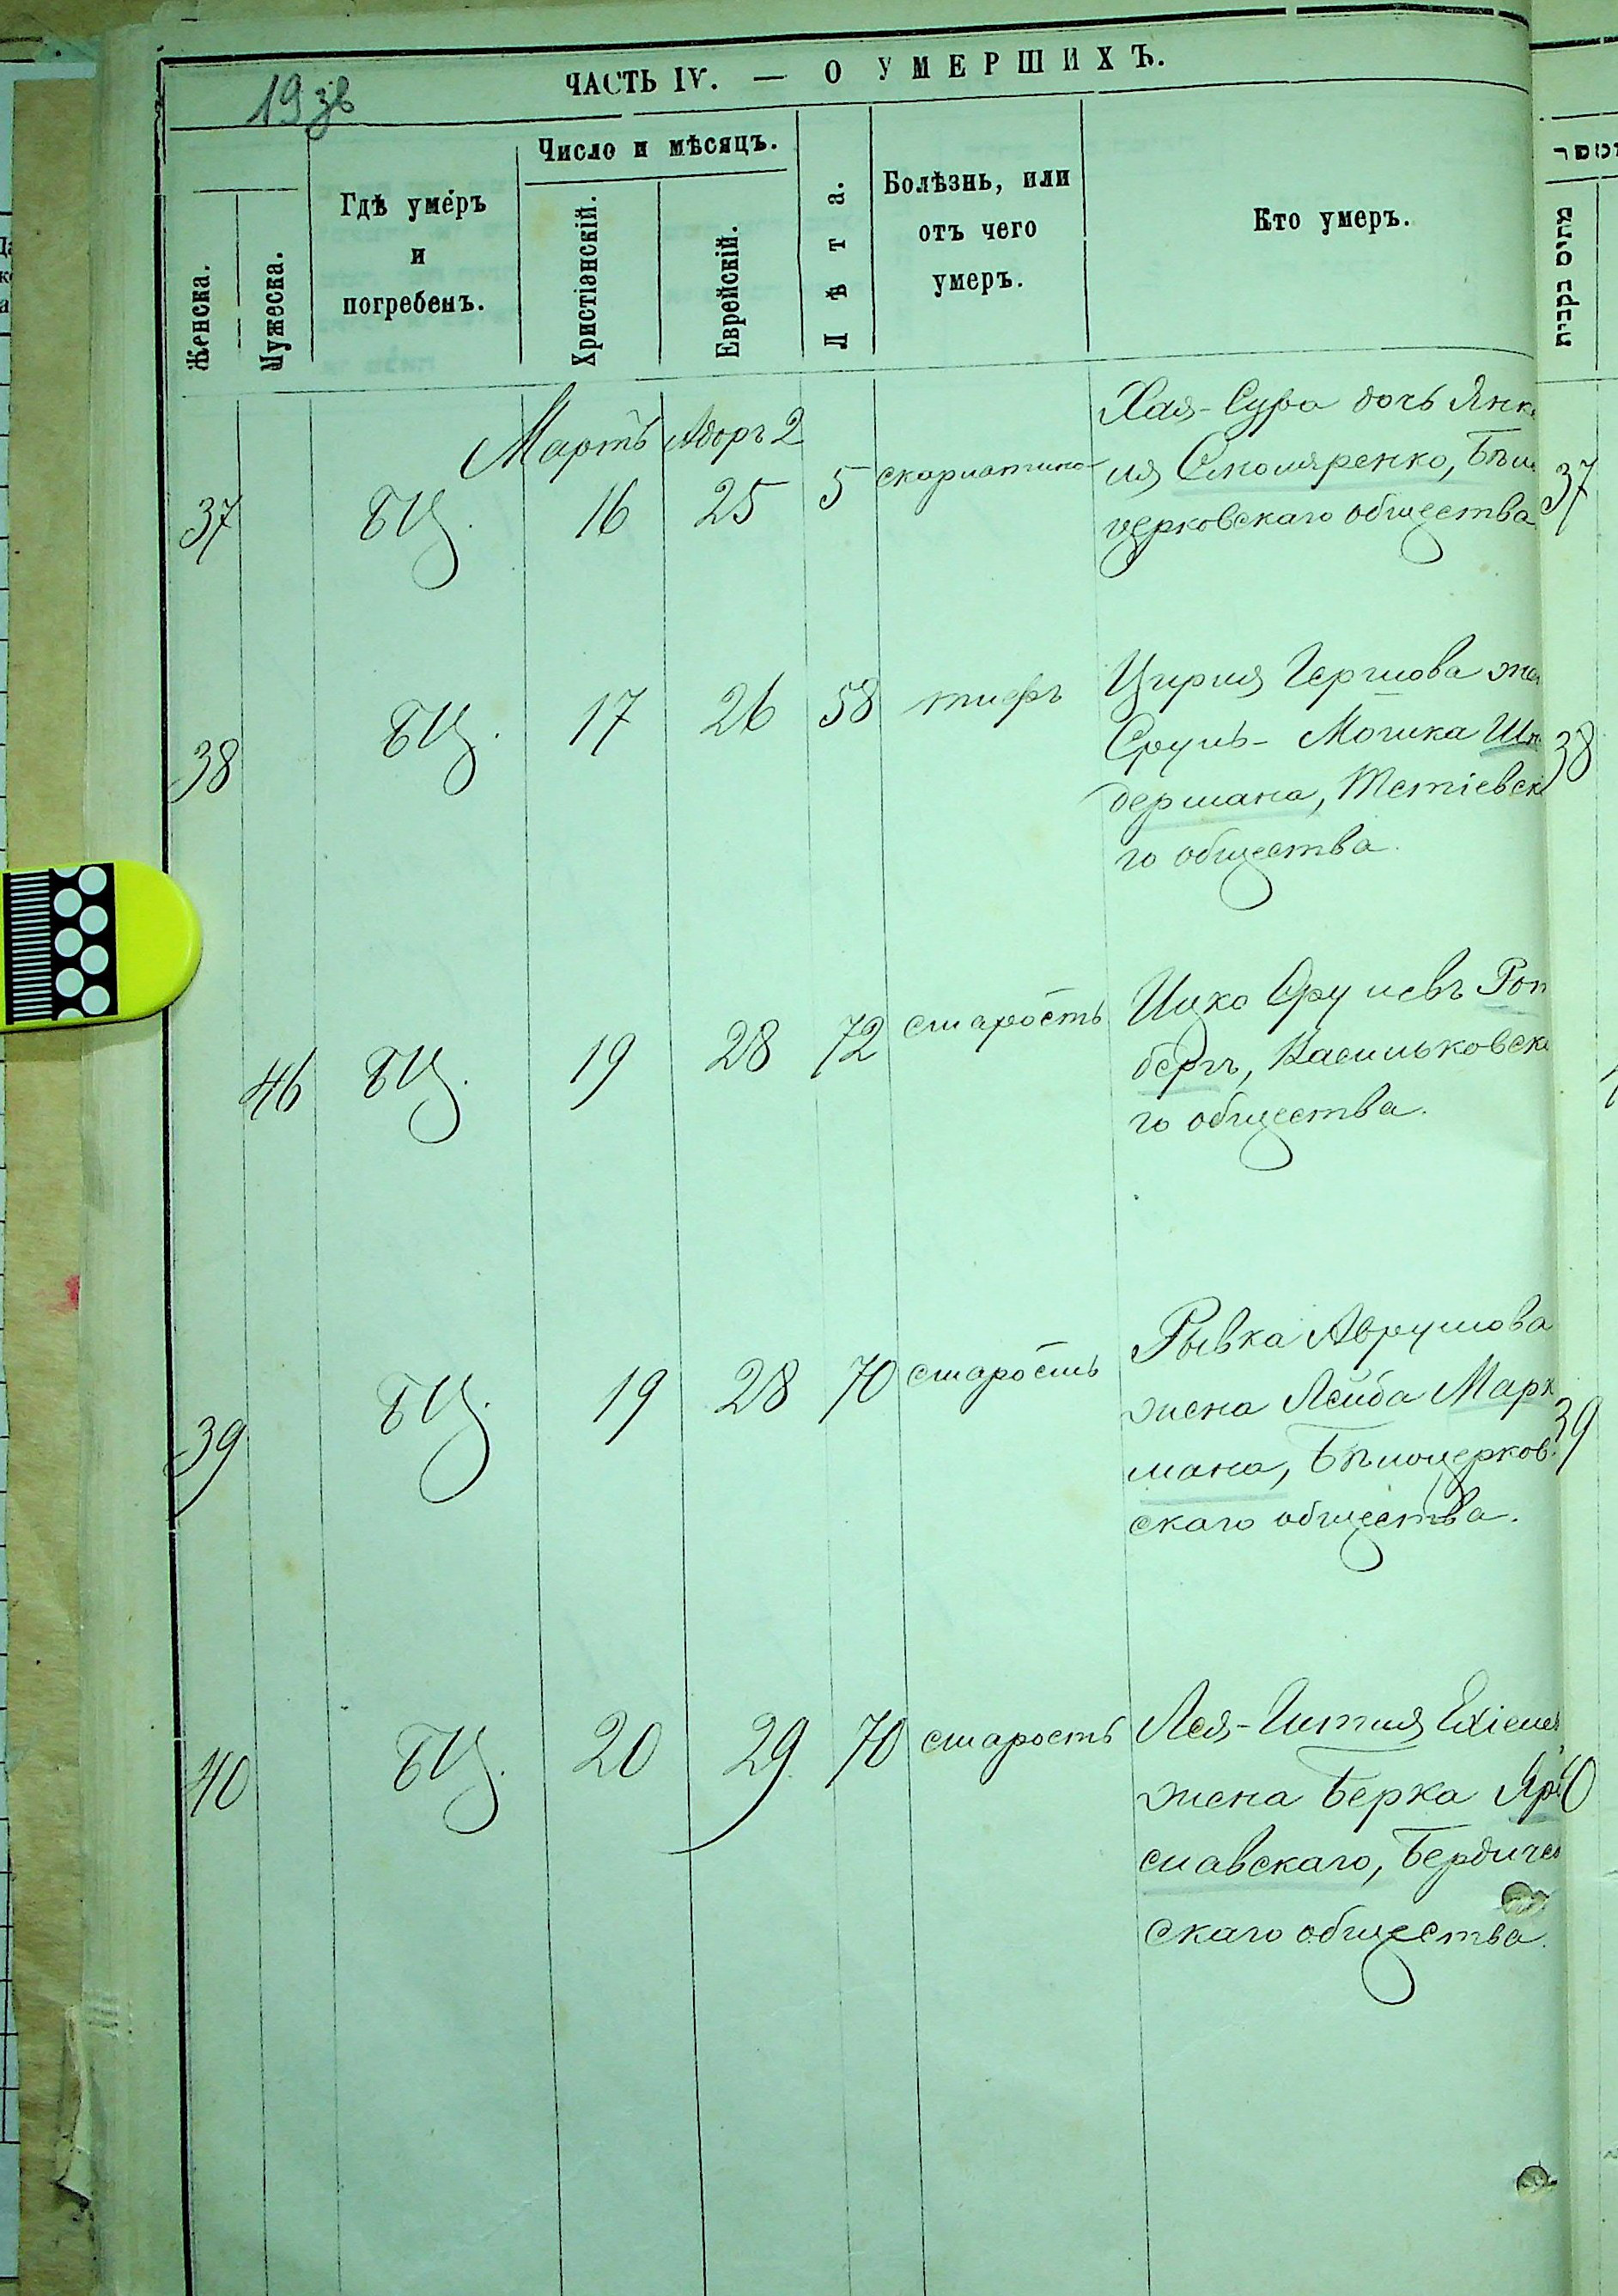 19 зв
ЧАСТЬ IV. — О УМЕРШИХЪ.
Женска.
Мужеска.
Гдѣ умеръ
и
погребенъ.
Число и мѣсяцъ.
Христіанскій.
Еврейскій.
Лѣта.
Болѣзнь, или
отъ чего
умеръ.
Кто умеръ.
מתים נקבות
Мартъ Адоръ 2
37 БЦ. 16 25 5 скарлатина
Хая-Сура дочь Янке
ля Столяренко, Бѣло
церковскаго общества
37
38 БЦ. 17 26 58 тифъ
Цирля Гершова же
Сруль-Мошка Шн
дермана, Тетіевска
го общества.
38
46 БЦ. 19 28 72 старость
Ицко Срулевъ Рот
бергъ, Васильковска
го общества.
39 БЦ. 19 28 70 старость
Рывка Аврумова
жена Лейба Марк
мана, Бѣлоцерков
скаго общества.
39
40 БЦ. 20 29 70 старость
Лея-Гитля Ехіел
жена Берка Яро
славскаго, Бердичев
скаго общества.